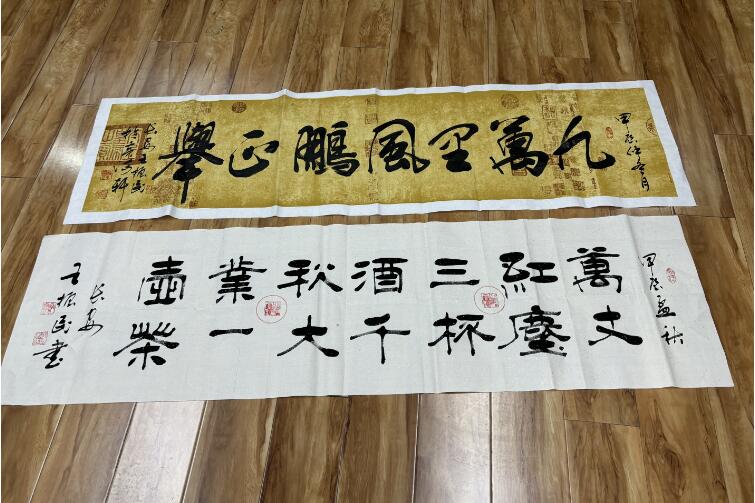 甲辰
九萬里風鵬正舉
长安王振民
甲辰孟秋
萬丈
紅塵
三杯
酒千
秋大
業一
壺茶
长安
王振民书